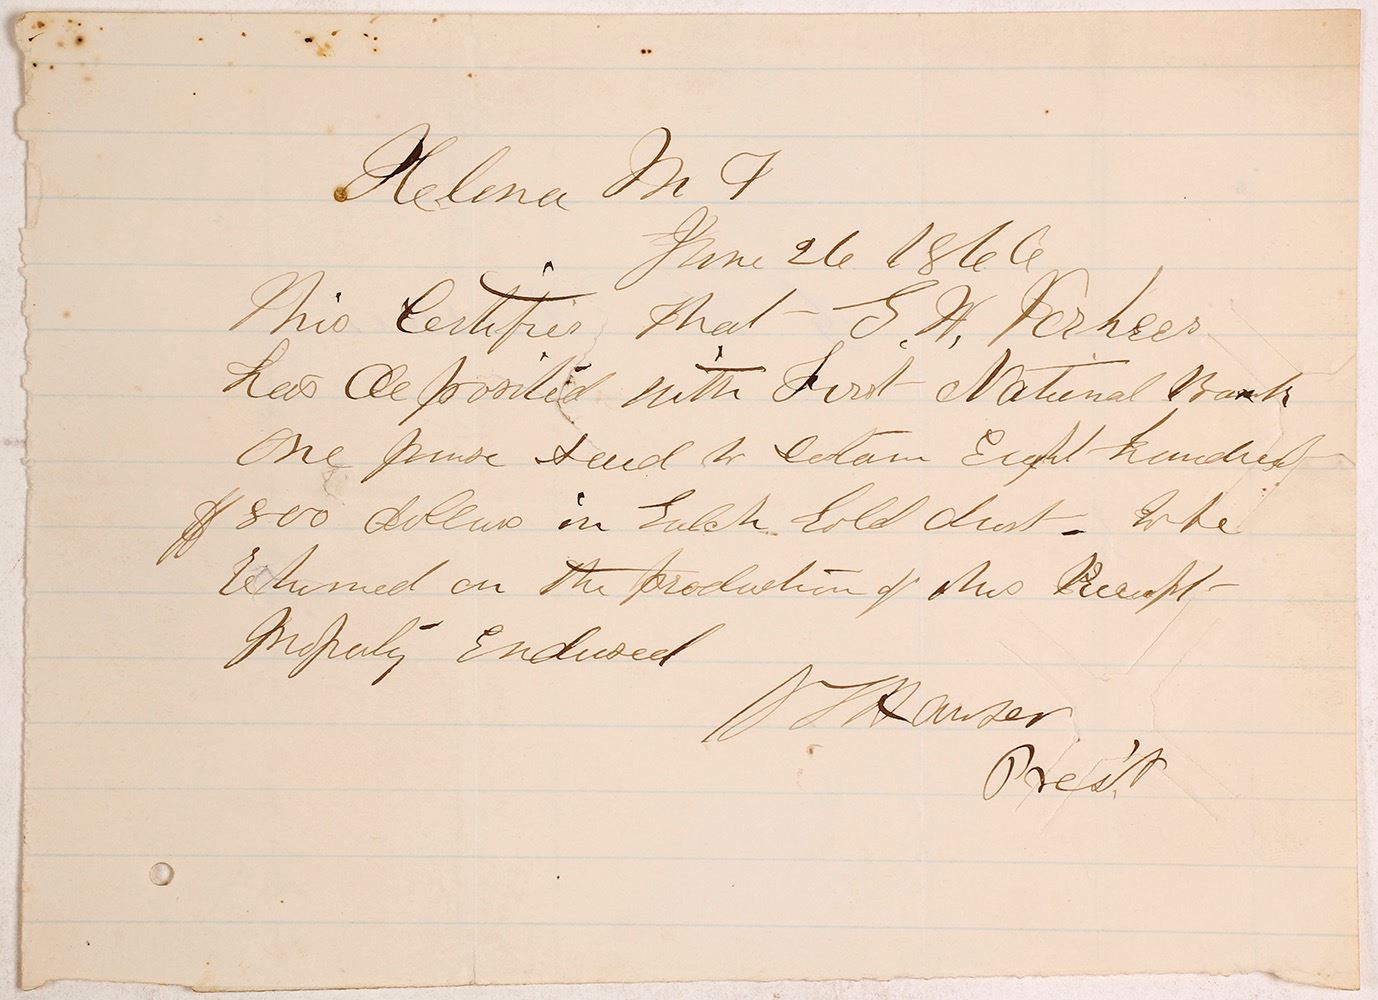 Helena M T
June 26 1866
This Certifies that G. H.
has deposited with First National Bank
One purse said to contain Eight hundred
$800 dollars in Gulch Gold dust - to be
returned on the production of this Receipt
Properly Endorsed
S T Hauser
Pres't